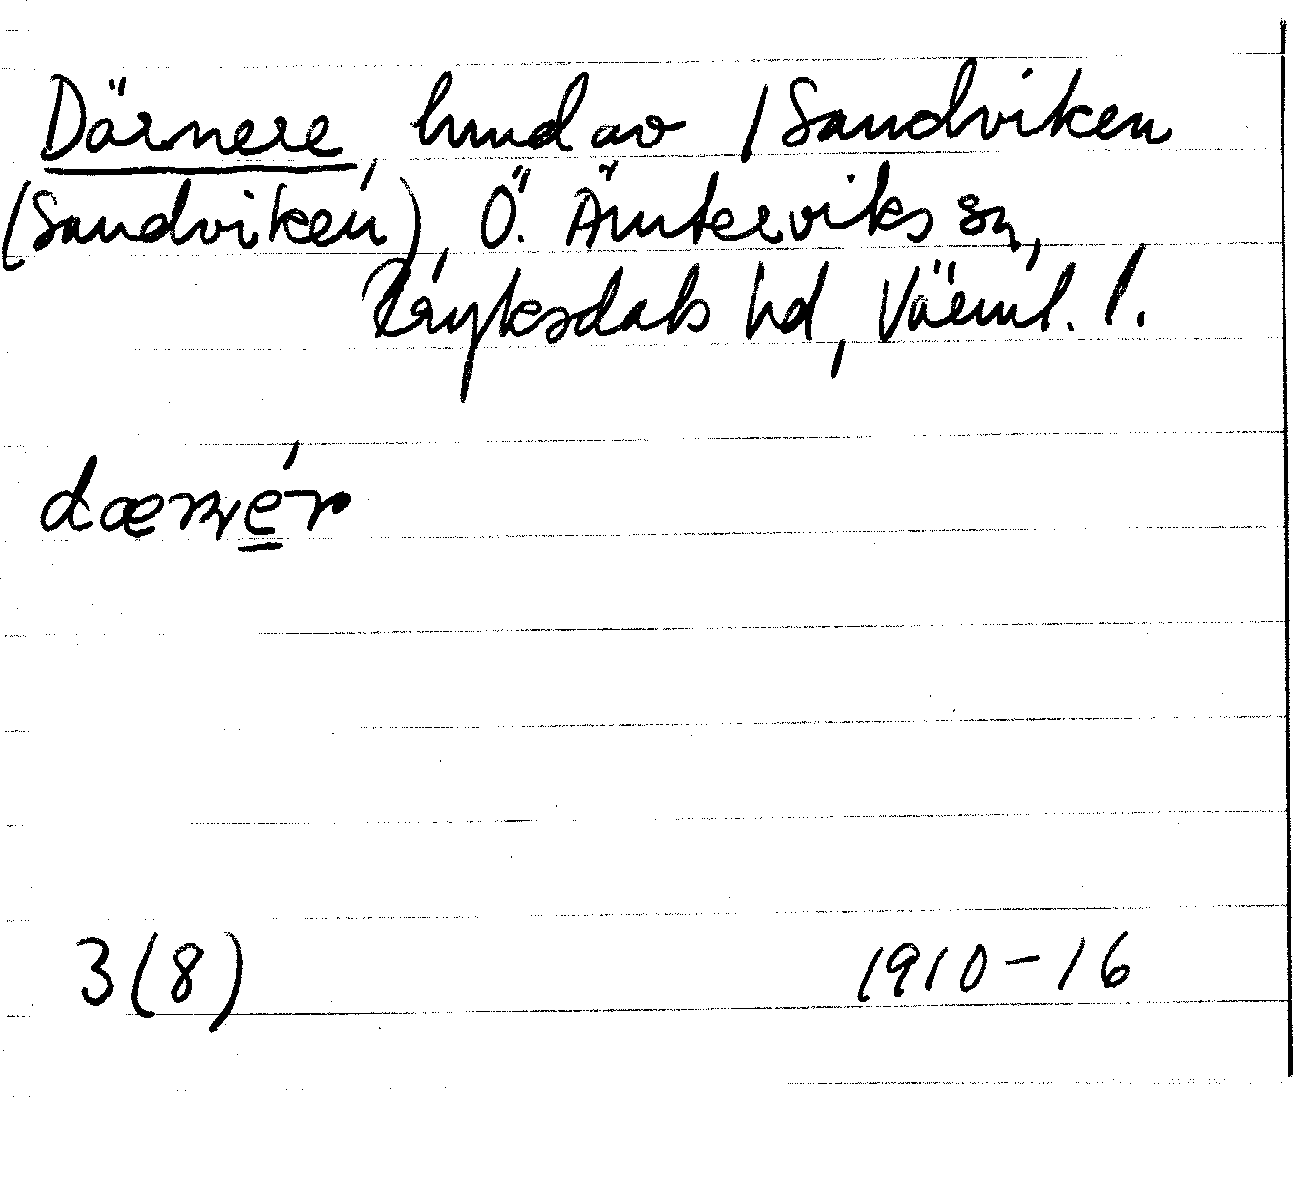 Därnere, hmd av /Sandviken
(Sandviken), Ö. Ämterviks sn,
Fryksdals hd, Värml. l.
3(8) 1910-16